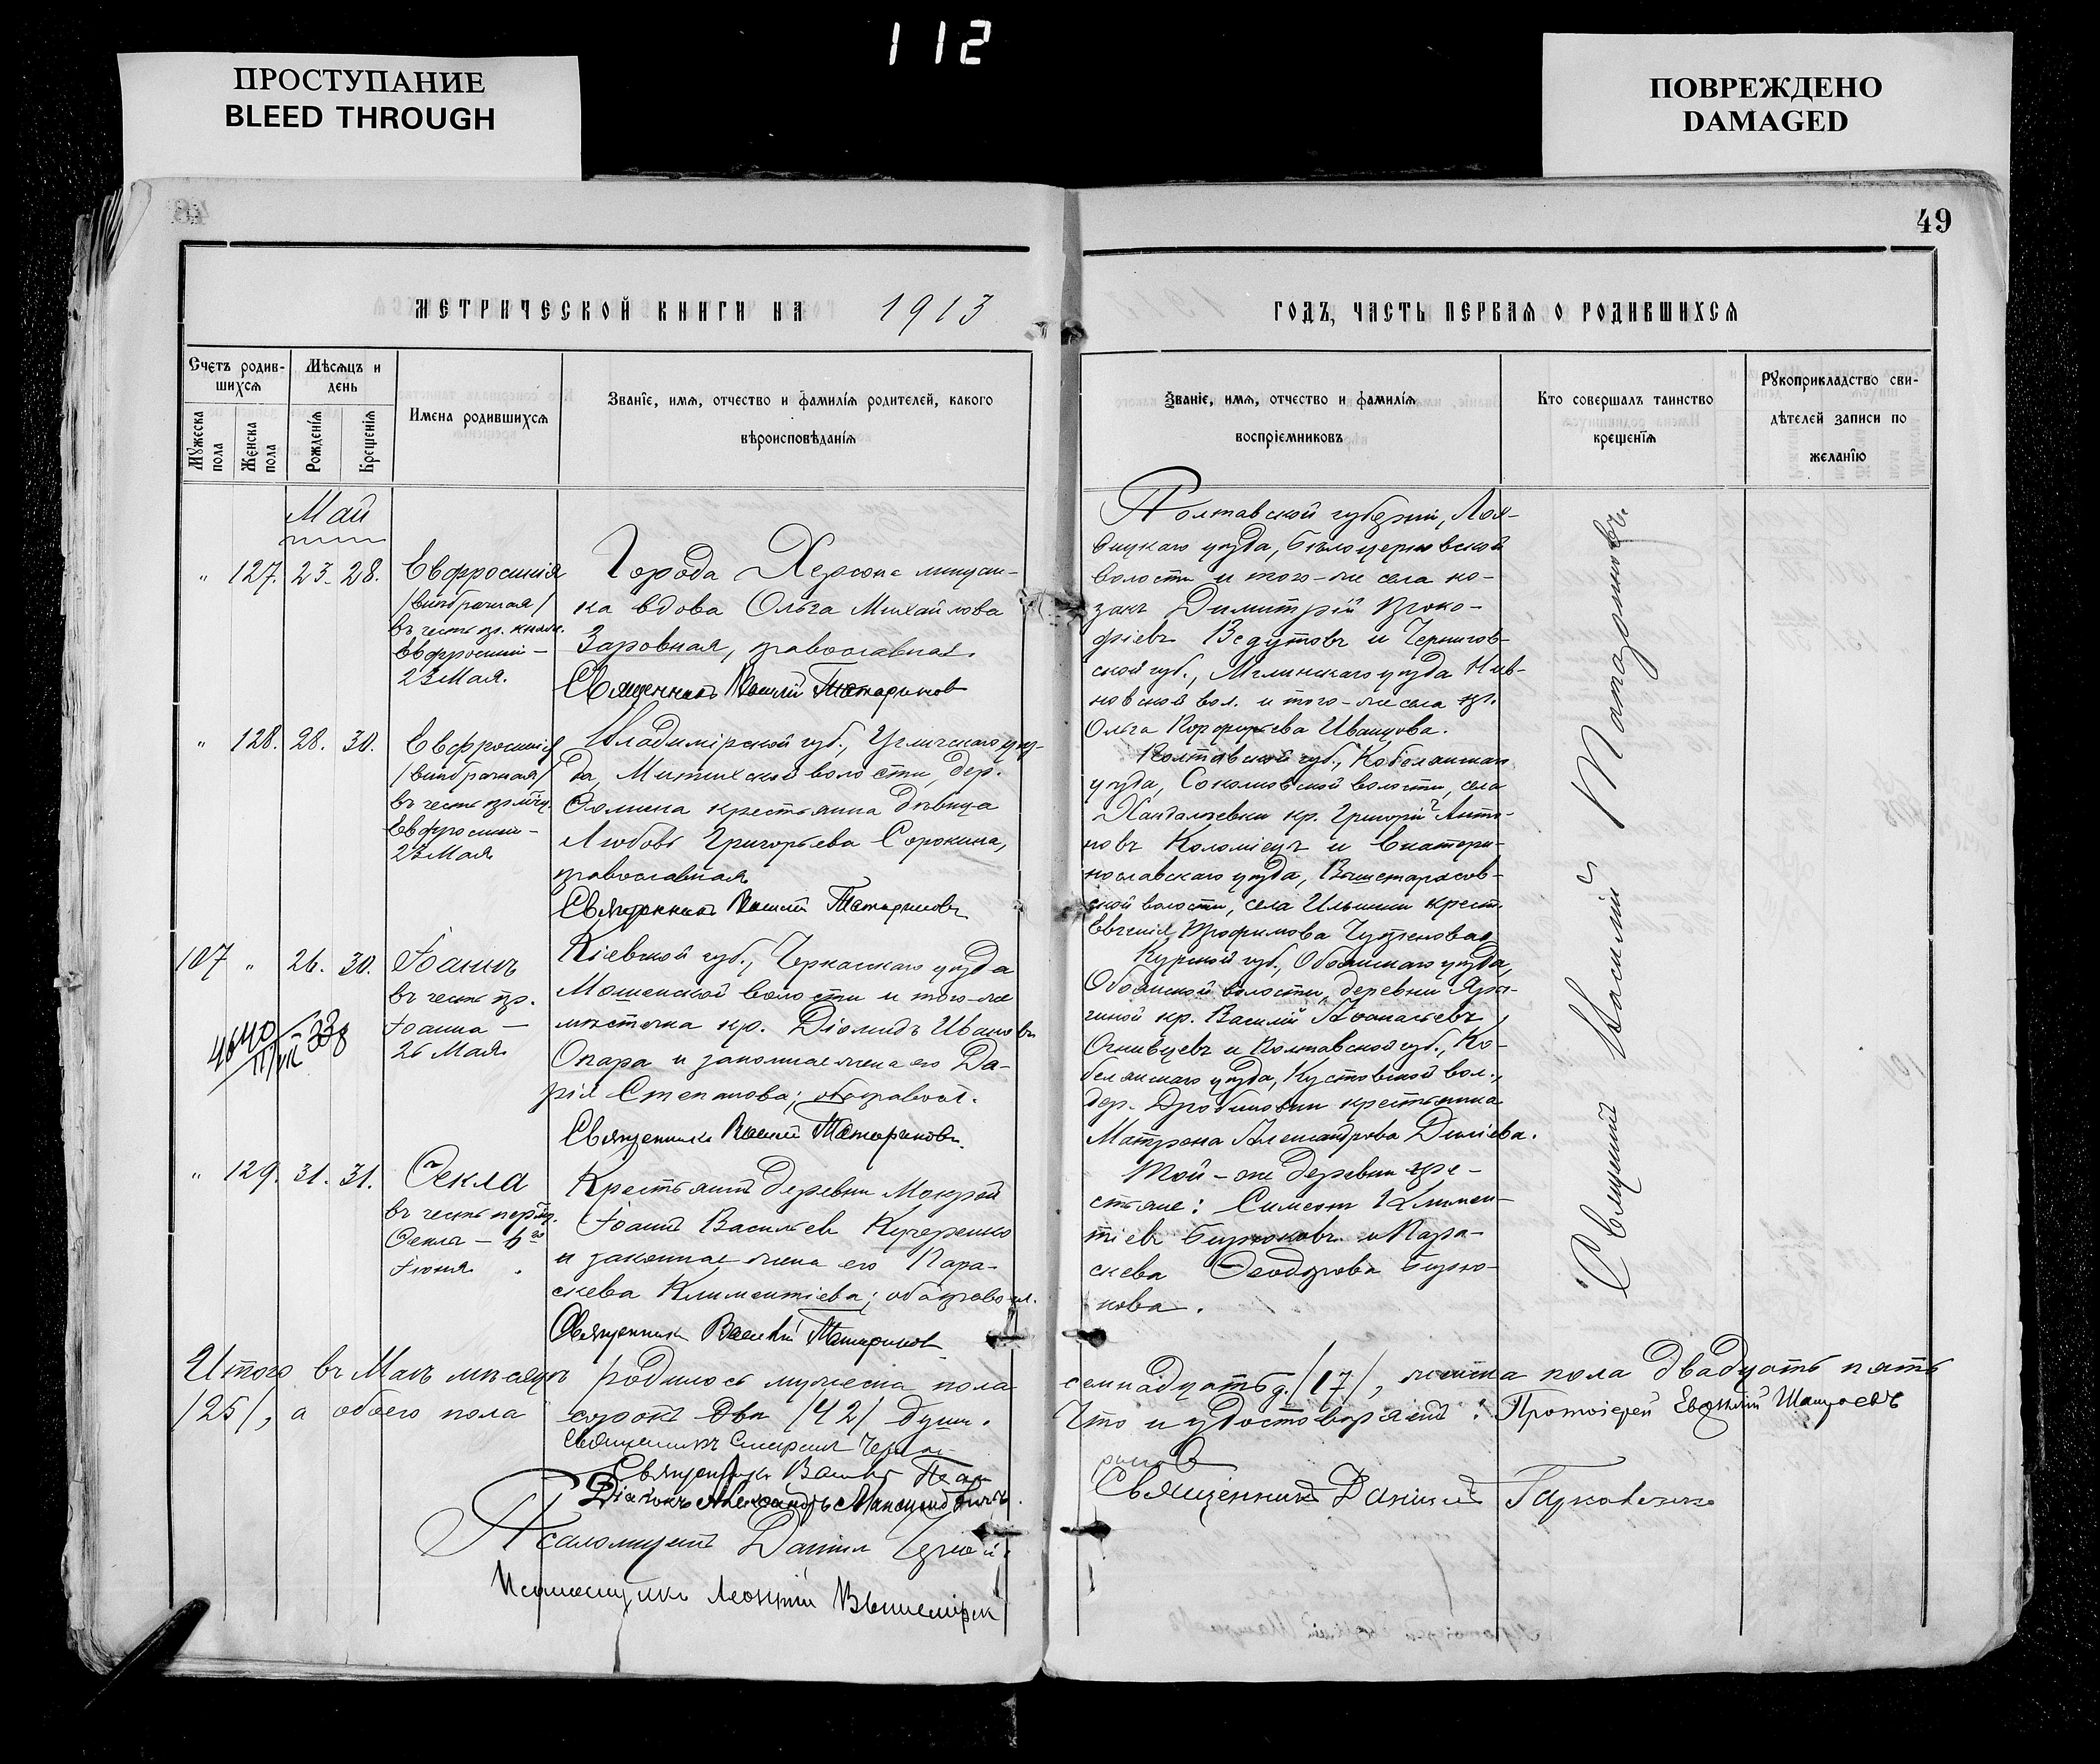 112
ПРОСТУПАНИЕ
BLEED THROUGH
ПОВРЕЖДЕНО
DAMAGED
49
МЕТРИЧЕСКОЙ КНИГИ НА 1913
ГОДЪ, ЧАСТЬ ПЕРВАЯ О РОДИВШИХСЯ
Счетъ родив-
шихся
Мужеска пола
Женска пола
Мѣсяцъ и
день
Рожденія
Крещенія
Имена родившихся
Званіе, имя, отчество и фамилія родителей, какого
вѣроисповѣданія
Званіе, имя, отчество и фамилія
воспріемниковъ
Кто совершалъ таинство
крещенія
Рукоприкладство сви-
дѣтелей записи по
желанію
Май
" 127. 23. 28.
Евфросинія
/внебрачная/
въ честь пр. княж.
Евфросиніи –
23 Мая.
Города Херсона мѣщан-
ка вдова Ольга Михайлова
Заровная, православная.
Священникъ Василій Татариновъ
Полтавской губерніи, Лох-
вицкаго уѣзда, Бѣлоцерковской
волости и того-же села ко-
закъ Димитрій Проко-
фіевъ и Чернигов-
ской губ., Мглинскаго уѣзда Нив-
новской вол. и того-же села кр.
Ольга Порфирьева Иванцова.
" 128. 28. 30.
Евфросинія
/внебрачная/
въ честь
Евфросиніи –
23 Мая
Владимірской губ., уѣз-
да, волости, дер.
крестьянка дѣвица
Любовь Григорьева Сорокина,
православная
Священникъ Василій Татариновъ
Полтавской губ., Кобелякскаго
уѣзда, Соколовской волости, села
кр. Григорій Анто-
новъ Коломіецъ и Екатери-
нославскаго уѣзда, Вышетарасов-
ской волости, села Ильинки крест.
Евгенія Трофимова
107 " 26. 30.
Іоаннъ
въ честь пр.
Іоанна –
26 Мая
Кіевской губ., Черкасскаго уѣзда
Мошенской волости и того-же
мѣстечка кр. Діомидъ Ивановъ
Опара и законная жена его Да-
рія Степанова; оба правосл.
Священникъ Василій Татариновъ.
Курской губ., Обоянскаго уѣзда,
Обоянской волости, деревни
кр. Василій Аѳанасьевъ
Огнивцевъ и Полтавской губ., Ко-
белякскаго уѣзда, Кустовской вол.,
дер. крестьянка
Матрона Александрова
" 129. 31. 31.
Ѳекла
въ честь
Ѳеклы – 6го
Іюня.
Крестьянинъ деревни Мокрой
Іоаннъ Васильевъ Кучеренко
и законная жена его Пара-
скева Климентіева; оба правосл.
Священникъ Василій Татариновъ
Той-же деревни кре-
стьяне: Симеонъ Климен-
тіевъ Бирюковъ и Пара-
скева Ѳеодорова Бирю-
кова.
Священникъ Василій Татариновъ.
Итого въ Маѣ мѣсяцѣ родилось мужеска пола семнадцать /17/, женска пола двадцать пять
/25/, а обоего пола сорокъ два /42/ душ.
Что и удостовѣряютъ: Протоіерей Евѳимій
Священникъ
Священникъ Василій Татариновъ
Священникъ Даніилъ
Діаконъ Александръ
Псаломщикъ Даніилъ
Псаломщикъ Леонтій